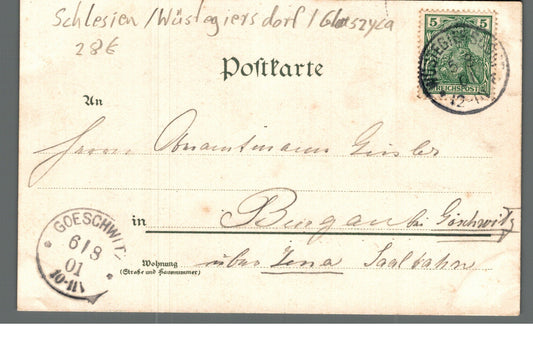 Schlesien/Wüstegiersdorf/Głuszyca
28€
5 5
REICHSPOST
Postkarte
An
Herrn Oberamtmann Geisler
in Burgau bei Göschwitz
Wohnung
(Straße und Hausnummer)
über Jena Saalbahn
GOESCHWITZ
6/8
01
10-11V